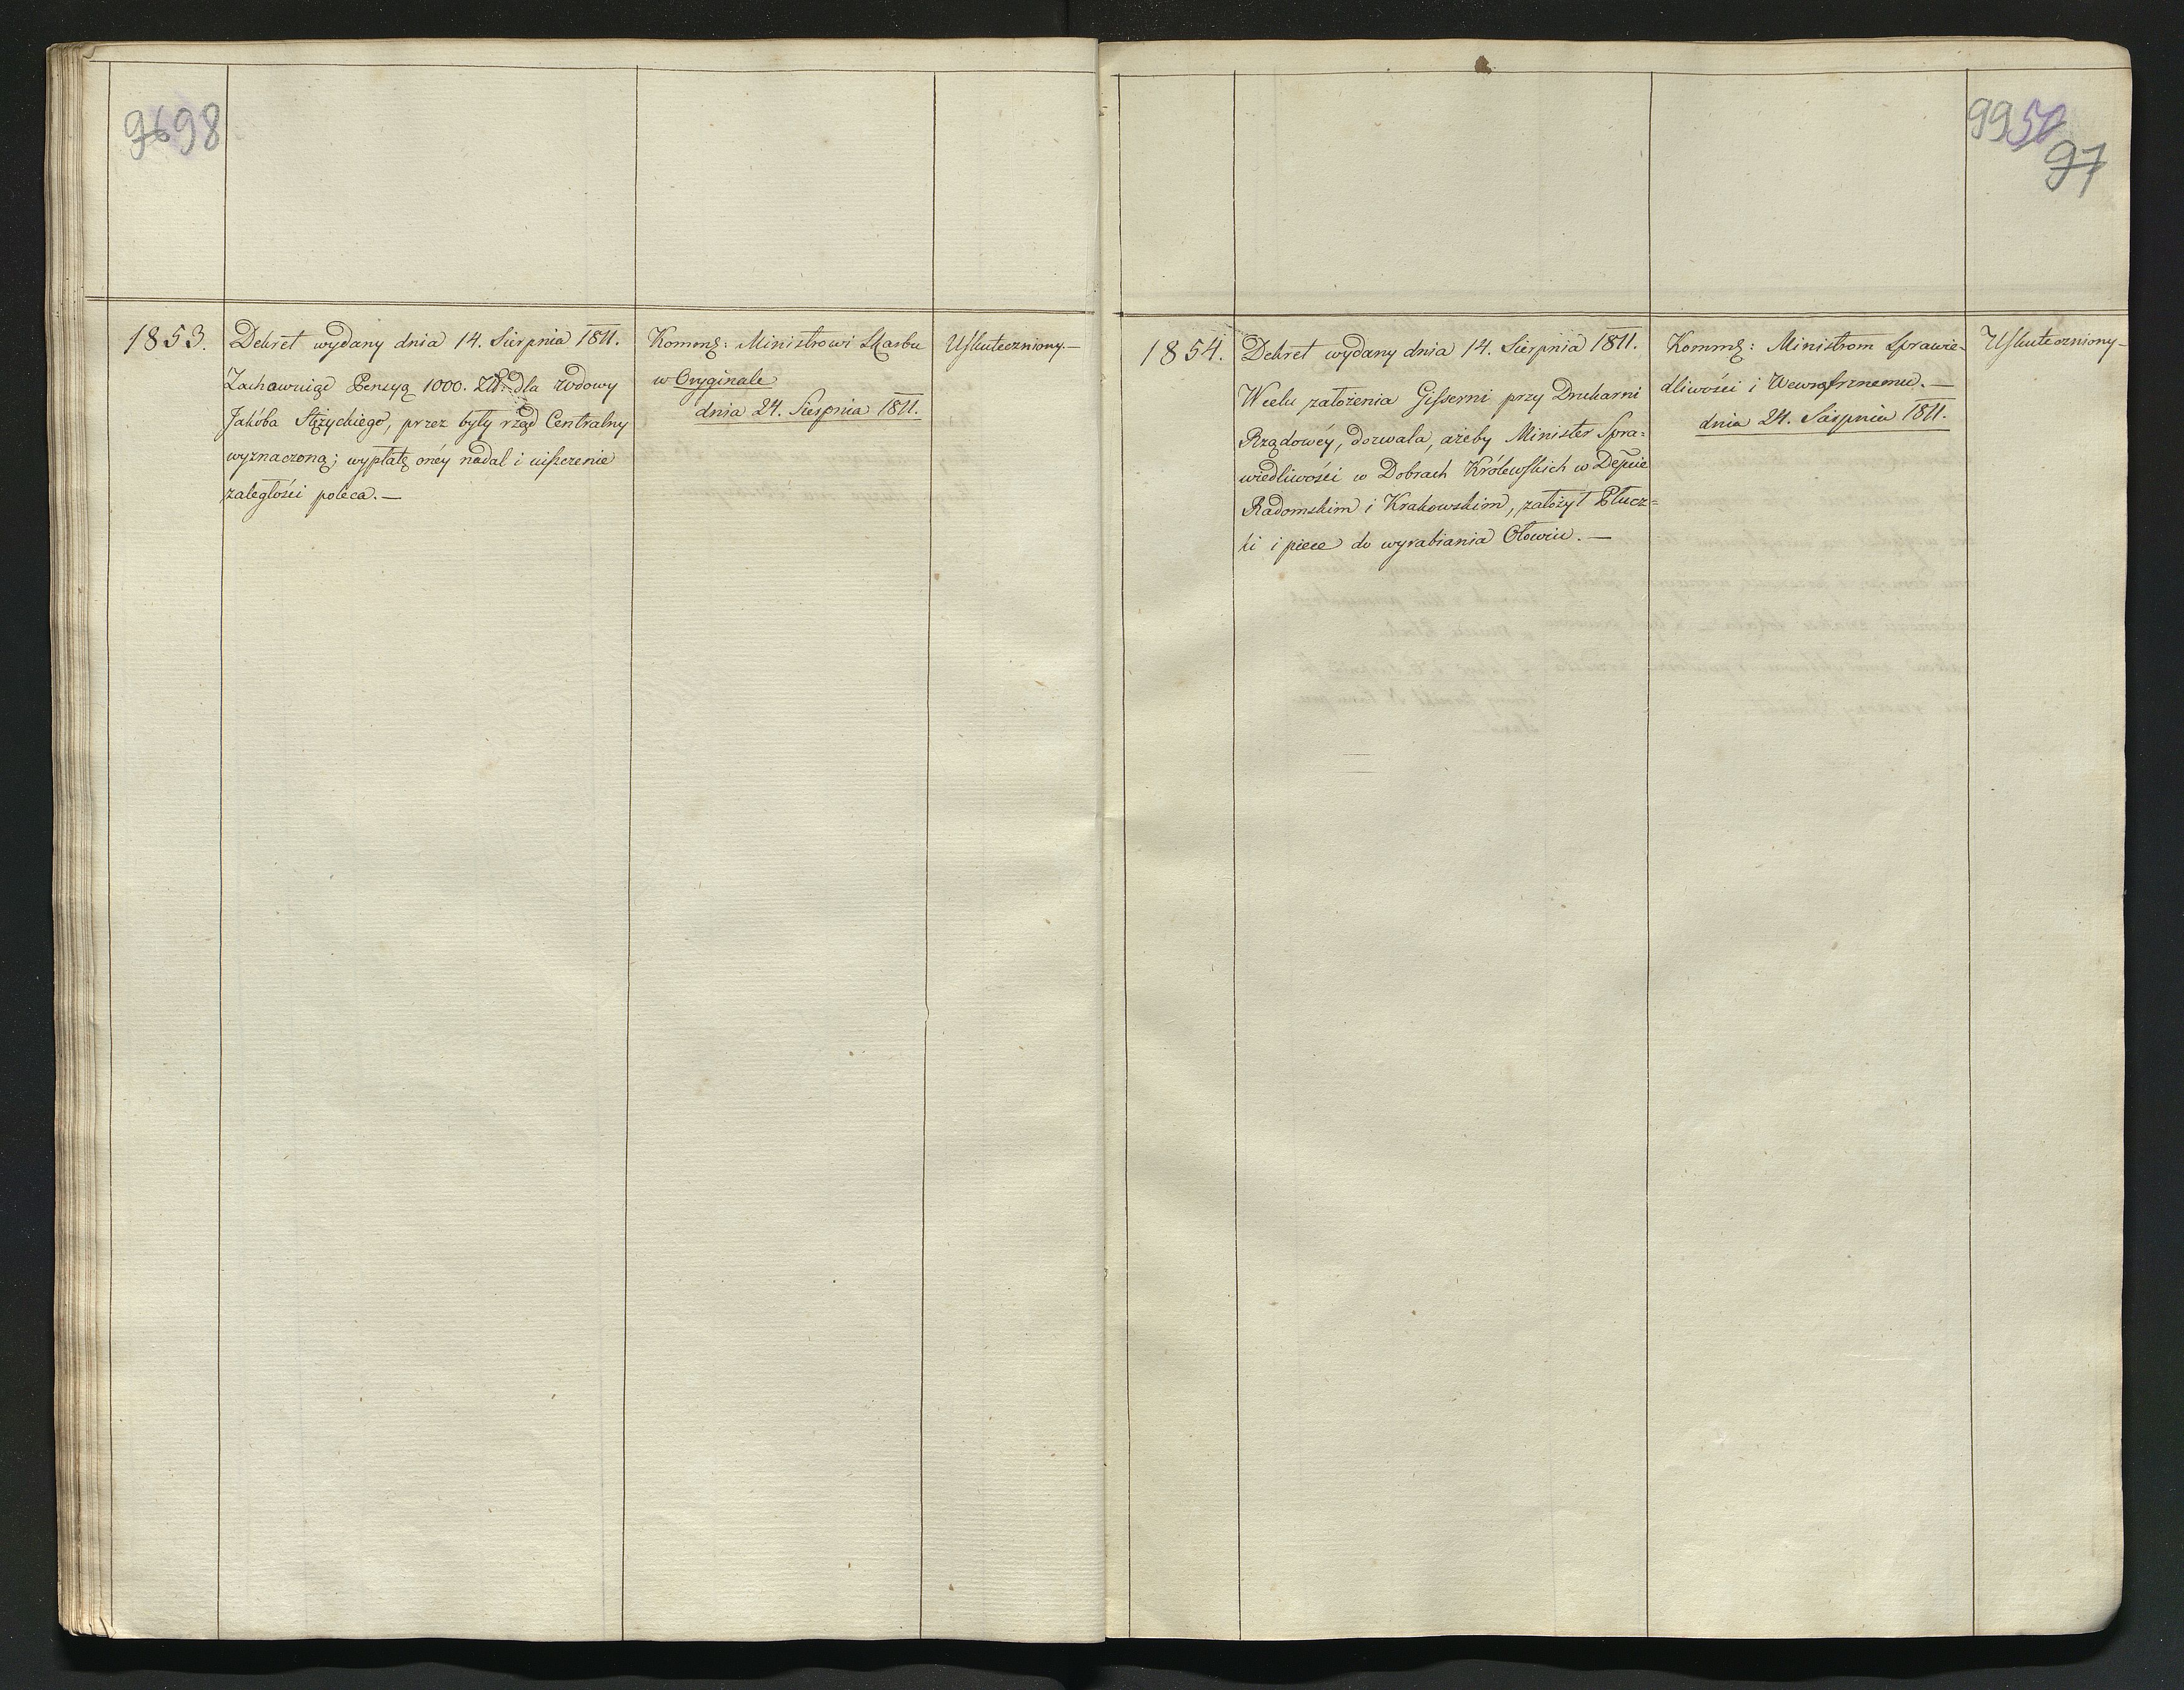 96 98
1853.
Dekret wydany dnia 14. Sierpnia 1811.
Zachowuiąc Pensyą 1000. Zł: dla wdowy
Jakóba Stężyckiego, przez były rząd Centralny
wyznaczoną; wypłatę onéy nadal i uiszczenie
zaległości poleca.—
Kommꝫ: Ministrowi Skarbu
w Oryginale
dnia 24. Sierpnia 1811.
Uskuteczniony.—
99 50
97
1854.
Dekret wydany dnia 14. Sierpnia 1811.
W celu założenia Gisserni przy Drukarni
Rządowéy, dozwala, ażeby Minister Spra=
wiedliwości w Dobrach Królewskich w Depcie
Radomskim i Krakowskim, założył Płucz=
ki i piece do wyrabiania Ołowiu.—
Kommꝫ: Ministrom Sprawie=
dliwości i Wewnętrznemu.—
dnia 24. Sierpnia 1811.
Uskuteczniony—